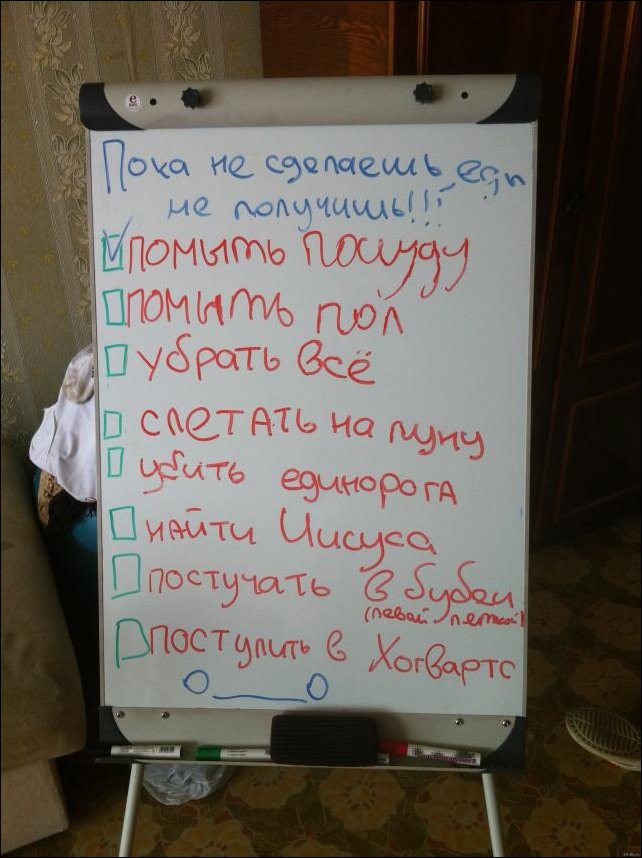 Пока не сделаешь,
не получишь!!!
помыть посуду
помыть пол
убрать всё
слетать на луну
убить единорога
найти Иисуса
постучать в бубен
(левой пяткой)
поступить в Хогвартс
O____O